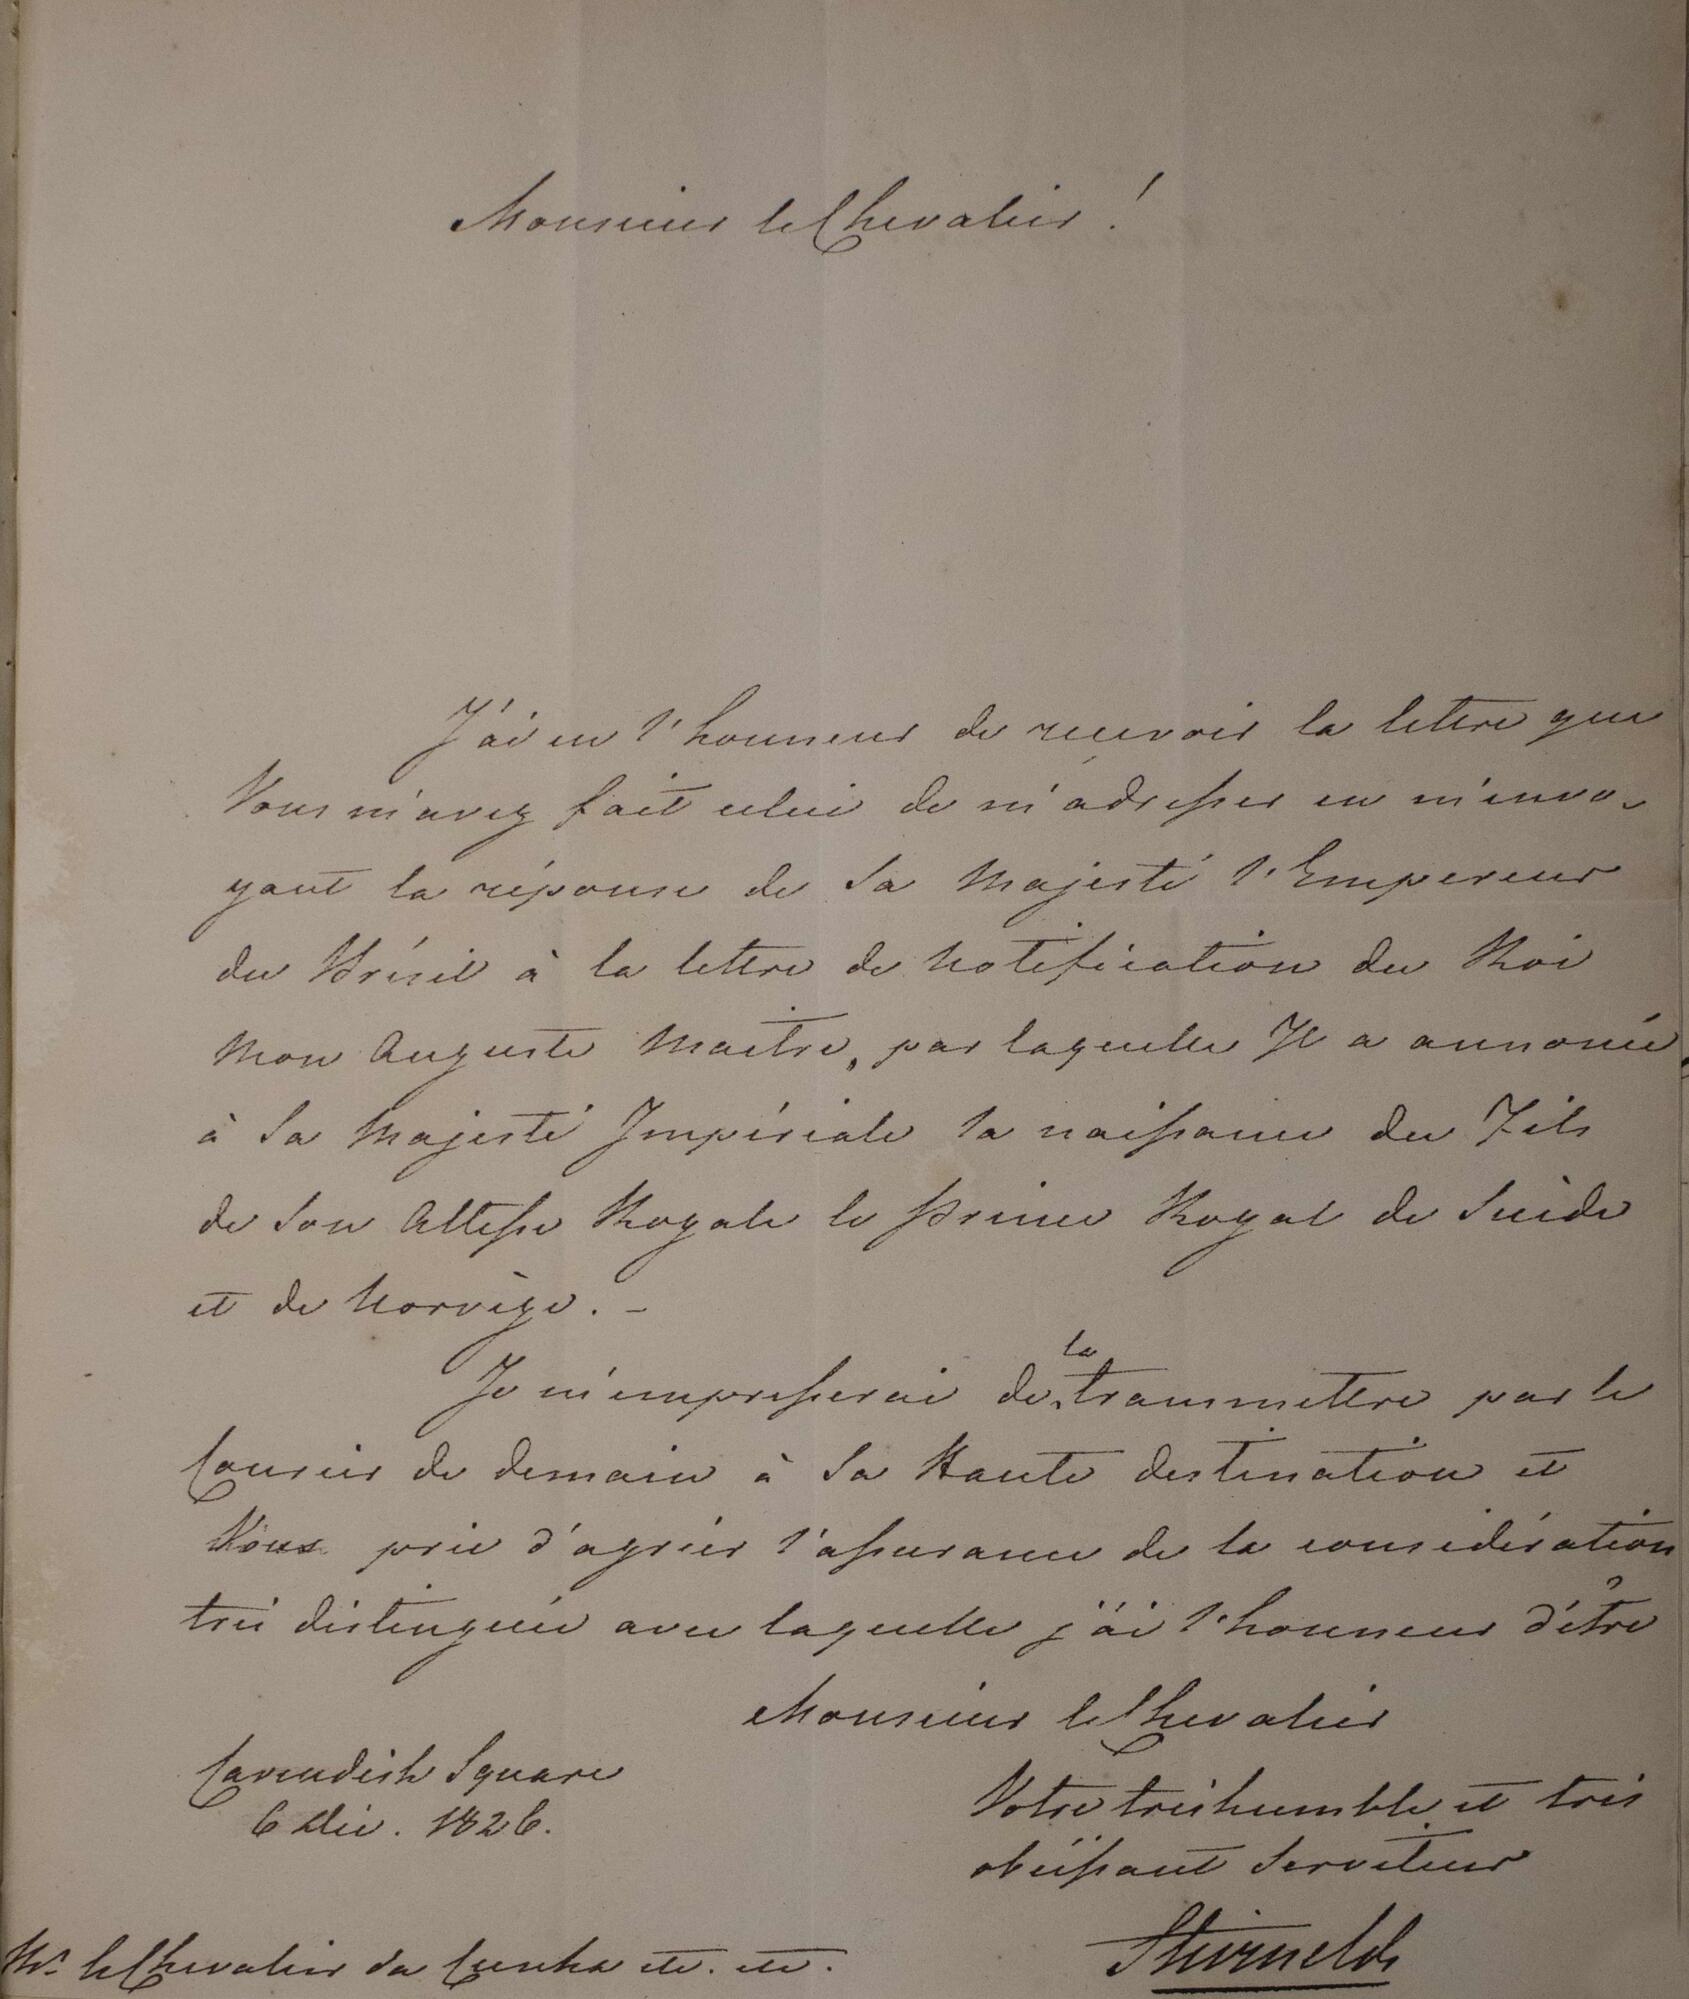 Monsieur le Chevalier !
J'ai eu l'honneur de recevoir la lettre que
Vous m'avez fait celui de m'adresser en m'envo-
yant la réponse de Sa Majesté l'Empereur
du Brésil à la lettre de Notification du Roi
Mon Auguste Maître, par laquelle Il a annoncé
à Sa Majesté Impériale la naissance du Fils
de Son Altesse Royale le Prince Royal de Suède
et de Norvège. -
Je m'empresserai de la transmettre par le
Courier de demain à Sa Haute destination et
Vous prie d'agréer l'assurance de la considération
très distinguée avec laquelle j'ai l'honneur d'être
Monsieur le Chevalier
Cavendish Square
6 Déc. 1826.
Votre très humble et très
obéissant Serviteur
Stierneld
Mr. le Chevalier da Cunha etc. etc.